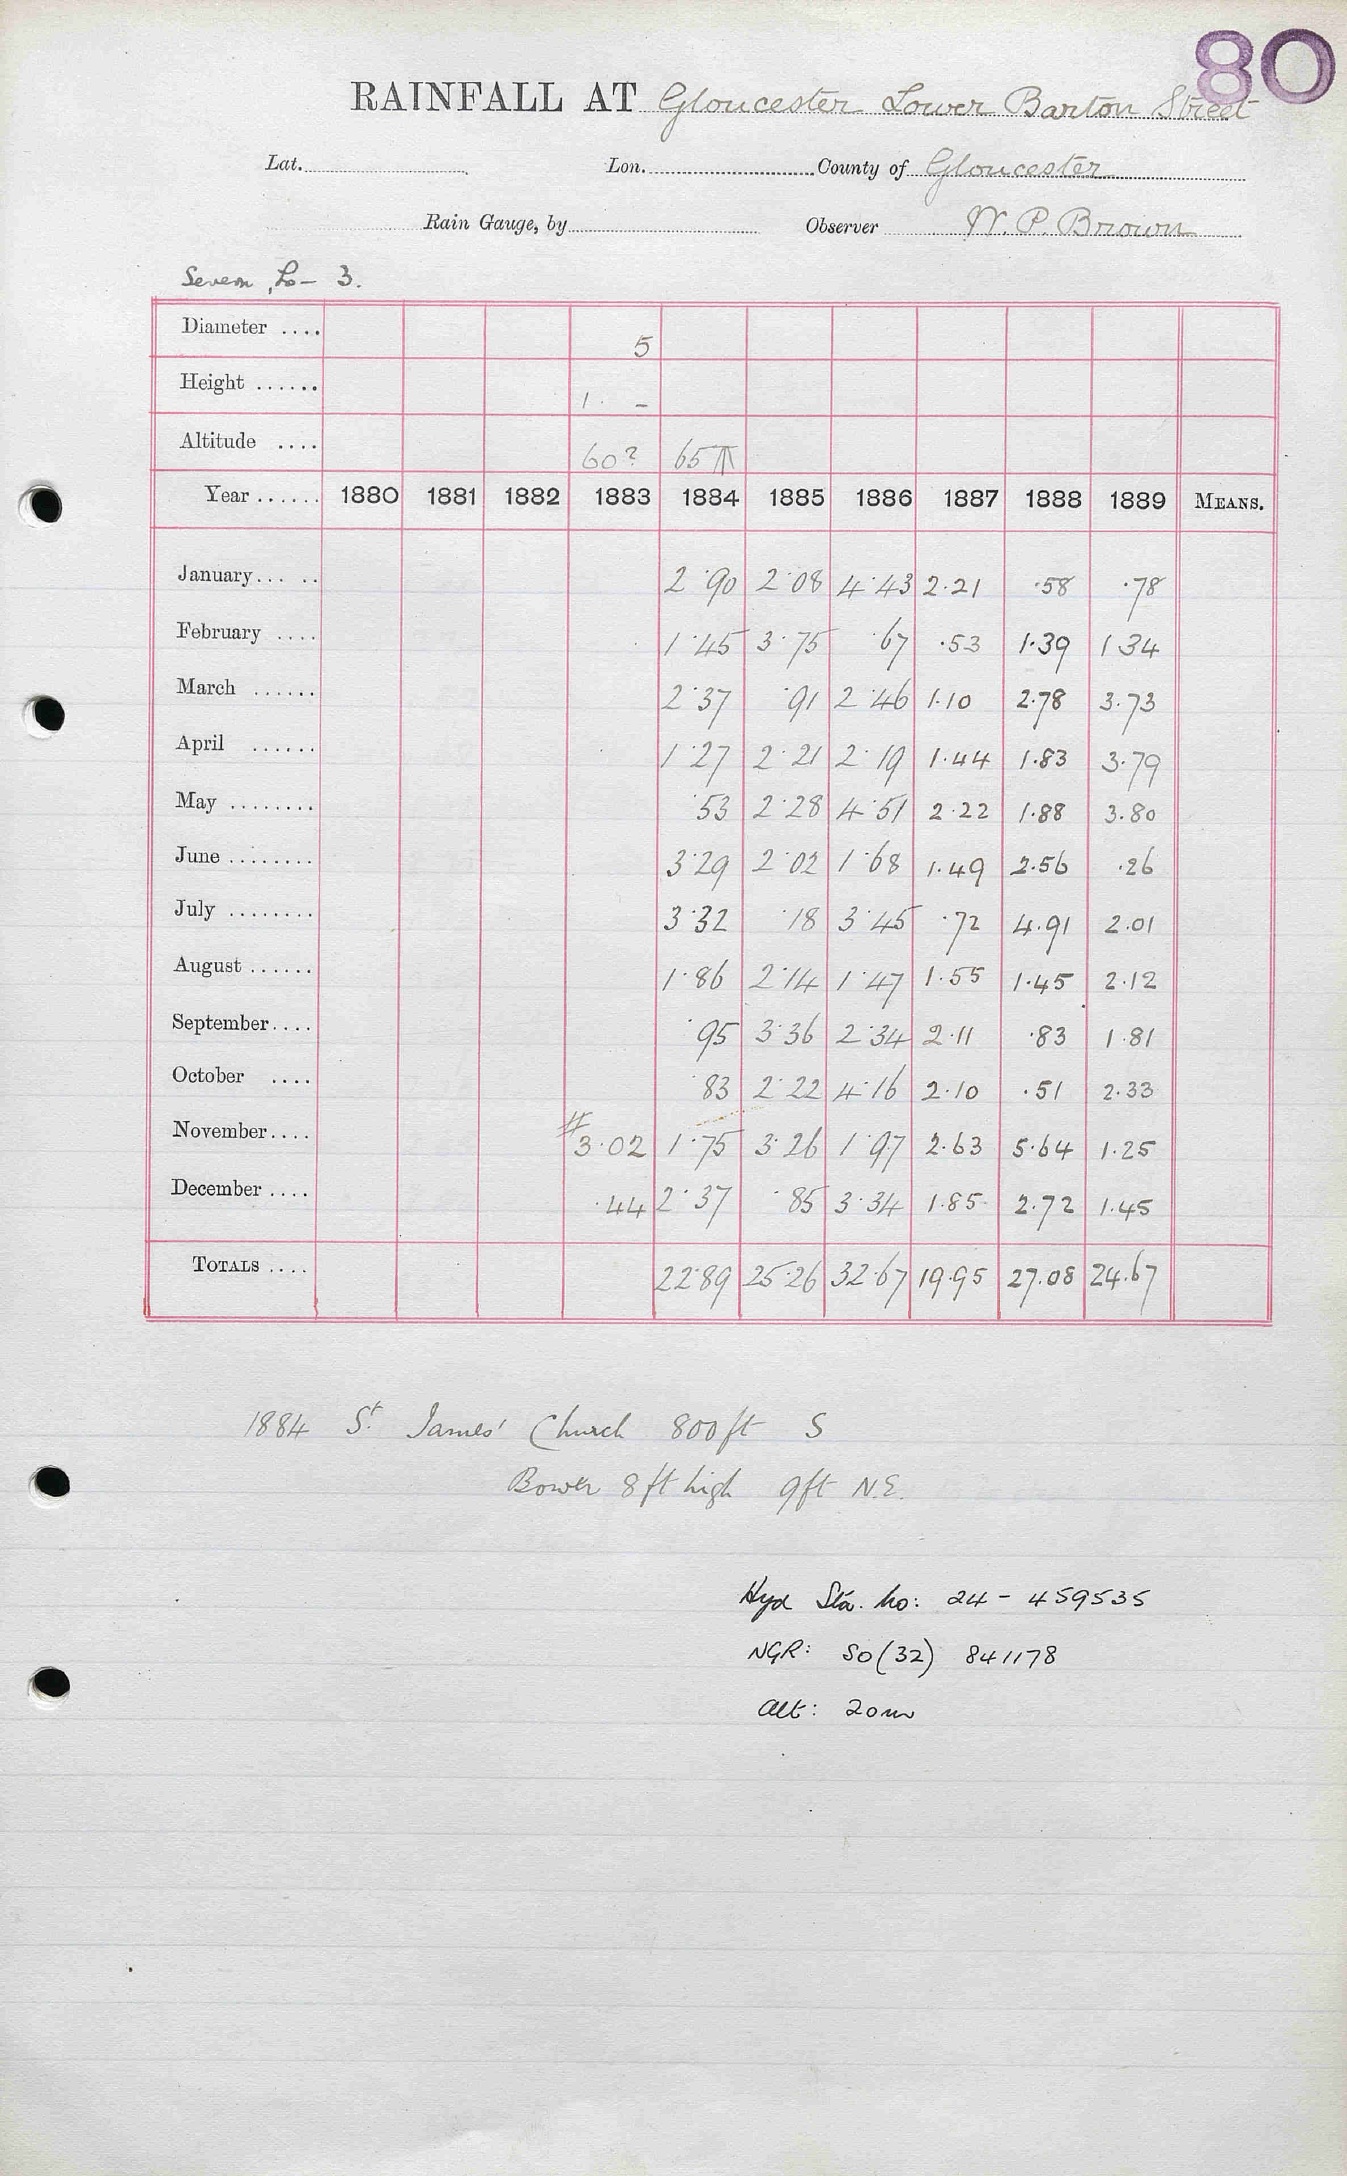 80
RAINFALL AT Gloucester Lower Barton Street
Lat. Lon. County of Gloucester
Rain Gauge, by Observer W. P. Brown
Severn, Lo - 3.
Diameter .... 5
Height ...... 1 · -
Altitude .... 60? 65
Year ...... 1880 1881 1882 1883 1884 1885 1886 1887 1888 1889 MEANS.
January... .. 2·90 2·08 4·43 2.21 ·58 ·78
February .... 1·45 3·75 ·67 ·53 1·39 1 34
March ...... 2·37 ·91 2·46 1·10 2·78 3·73
April ...... 1·27 2·21 2·19 1·44 1·83 3·79
May ........ ·53 2·28 4·51 2·22 1·88 3.80
June ........ 3·29 2·02 1·68 1·49 2·56 ·26
July ........ 3·32 ·18 3·45 ·72 4·91 2·01
August ...... 1·86 2·14 1·47 1·55 1·45 2·12
September.... ·95 3·36 2·34 2·11 ·83 1·81
October .... ·83 2·22 4·16 2·10 ·51 2·33
November.... #3·02 1·75 3·26 1·97 2·63 5·64 1·25
December .... ·44 2·37 ·85 3·34 1·85 2·72 1·45
TOTALS .... 22·89 25·26 32·67 19·95 27.08 24.67
1884 St. James' Church 800ft S
Bower 8ft high 9ft N.E.
Hyd Sta. No: 24 - 459535
NGR: SO(32) 841178
Alt: 20m